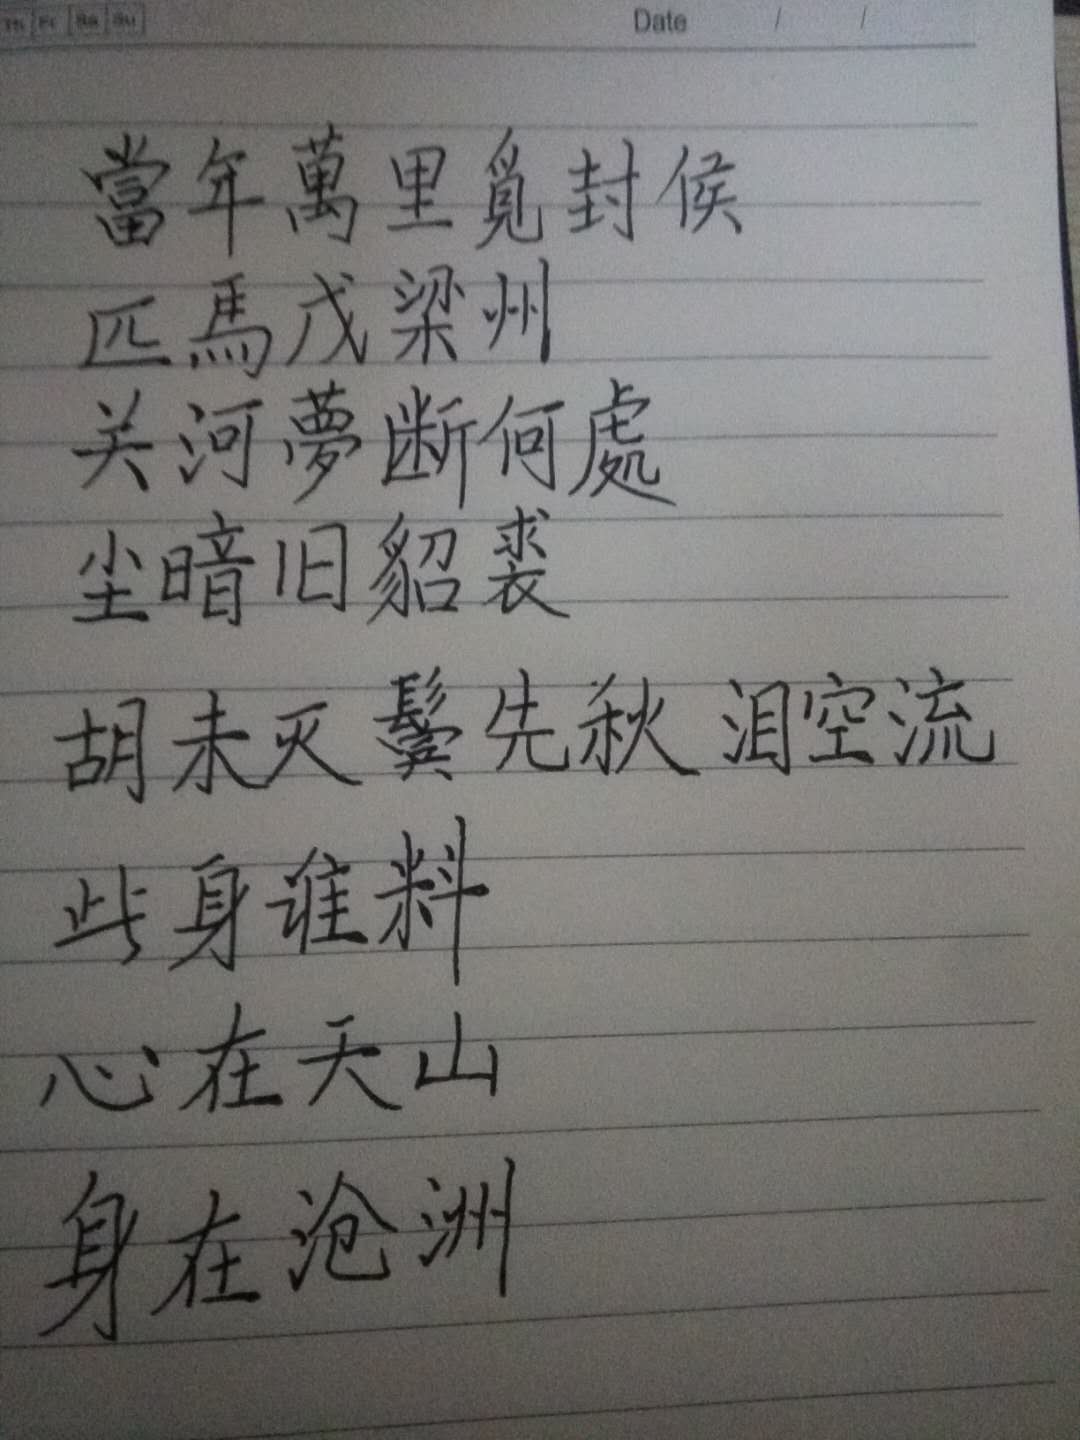 Th Fr Sa Su Date / /
當年萬里覓封侯
匹馬戍梁州
关河夢断何處
尘暗旧貂裘
胡未灭鬓先秋 泪空流
此身谁料
心在天山
身在沧洲